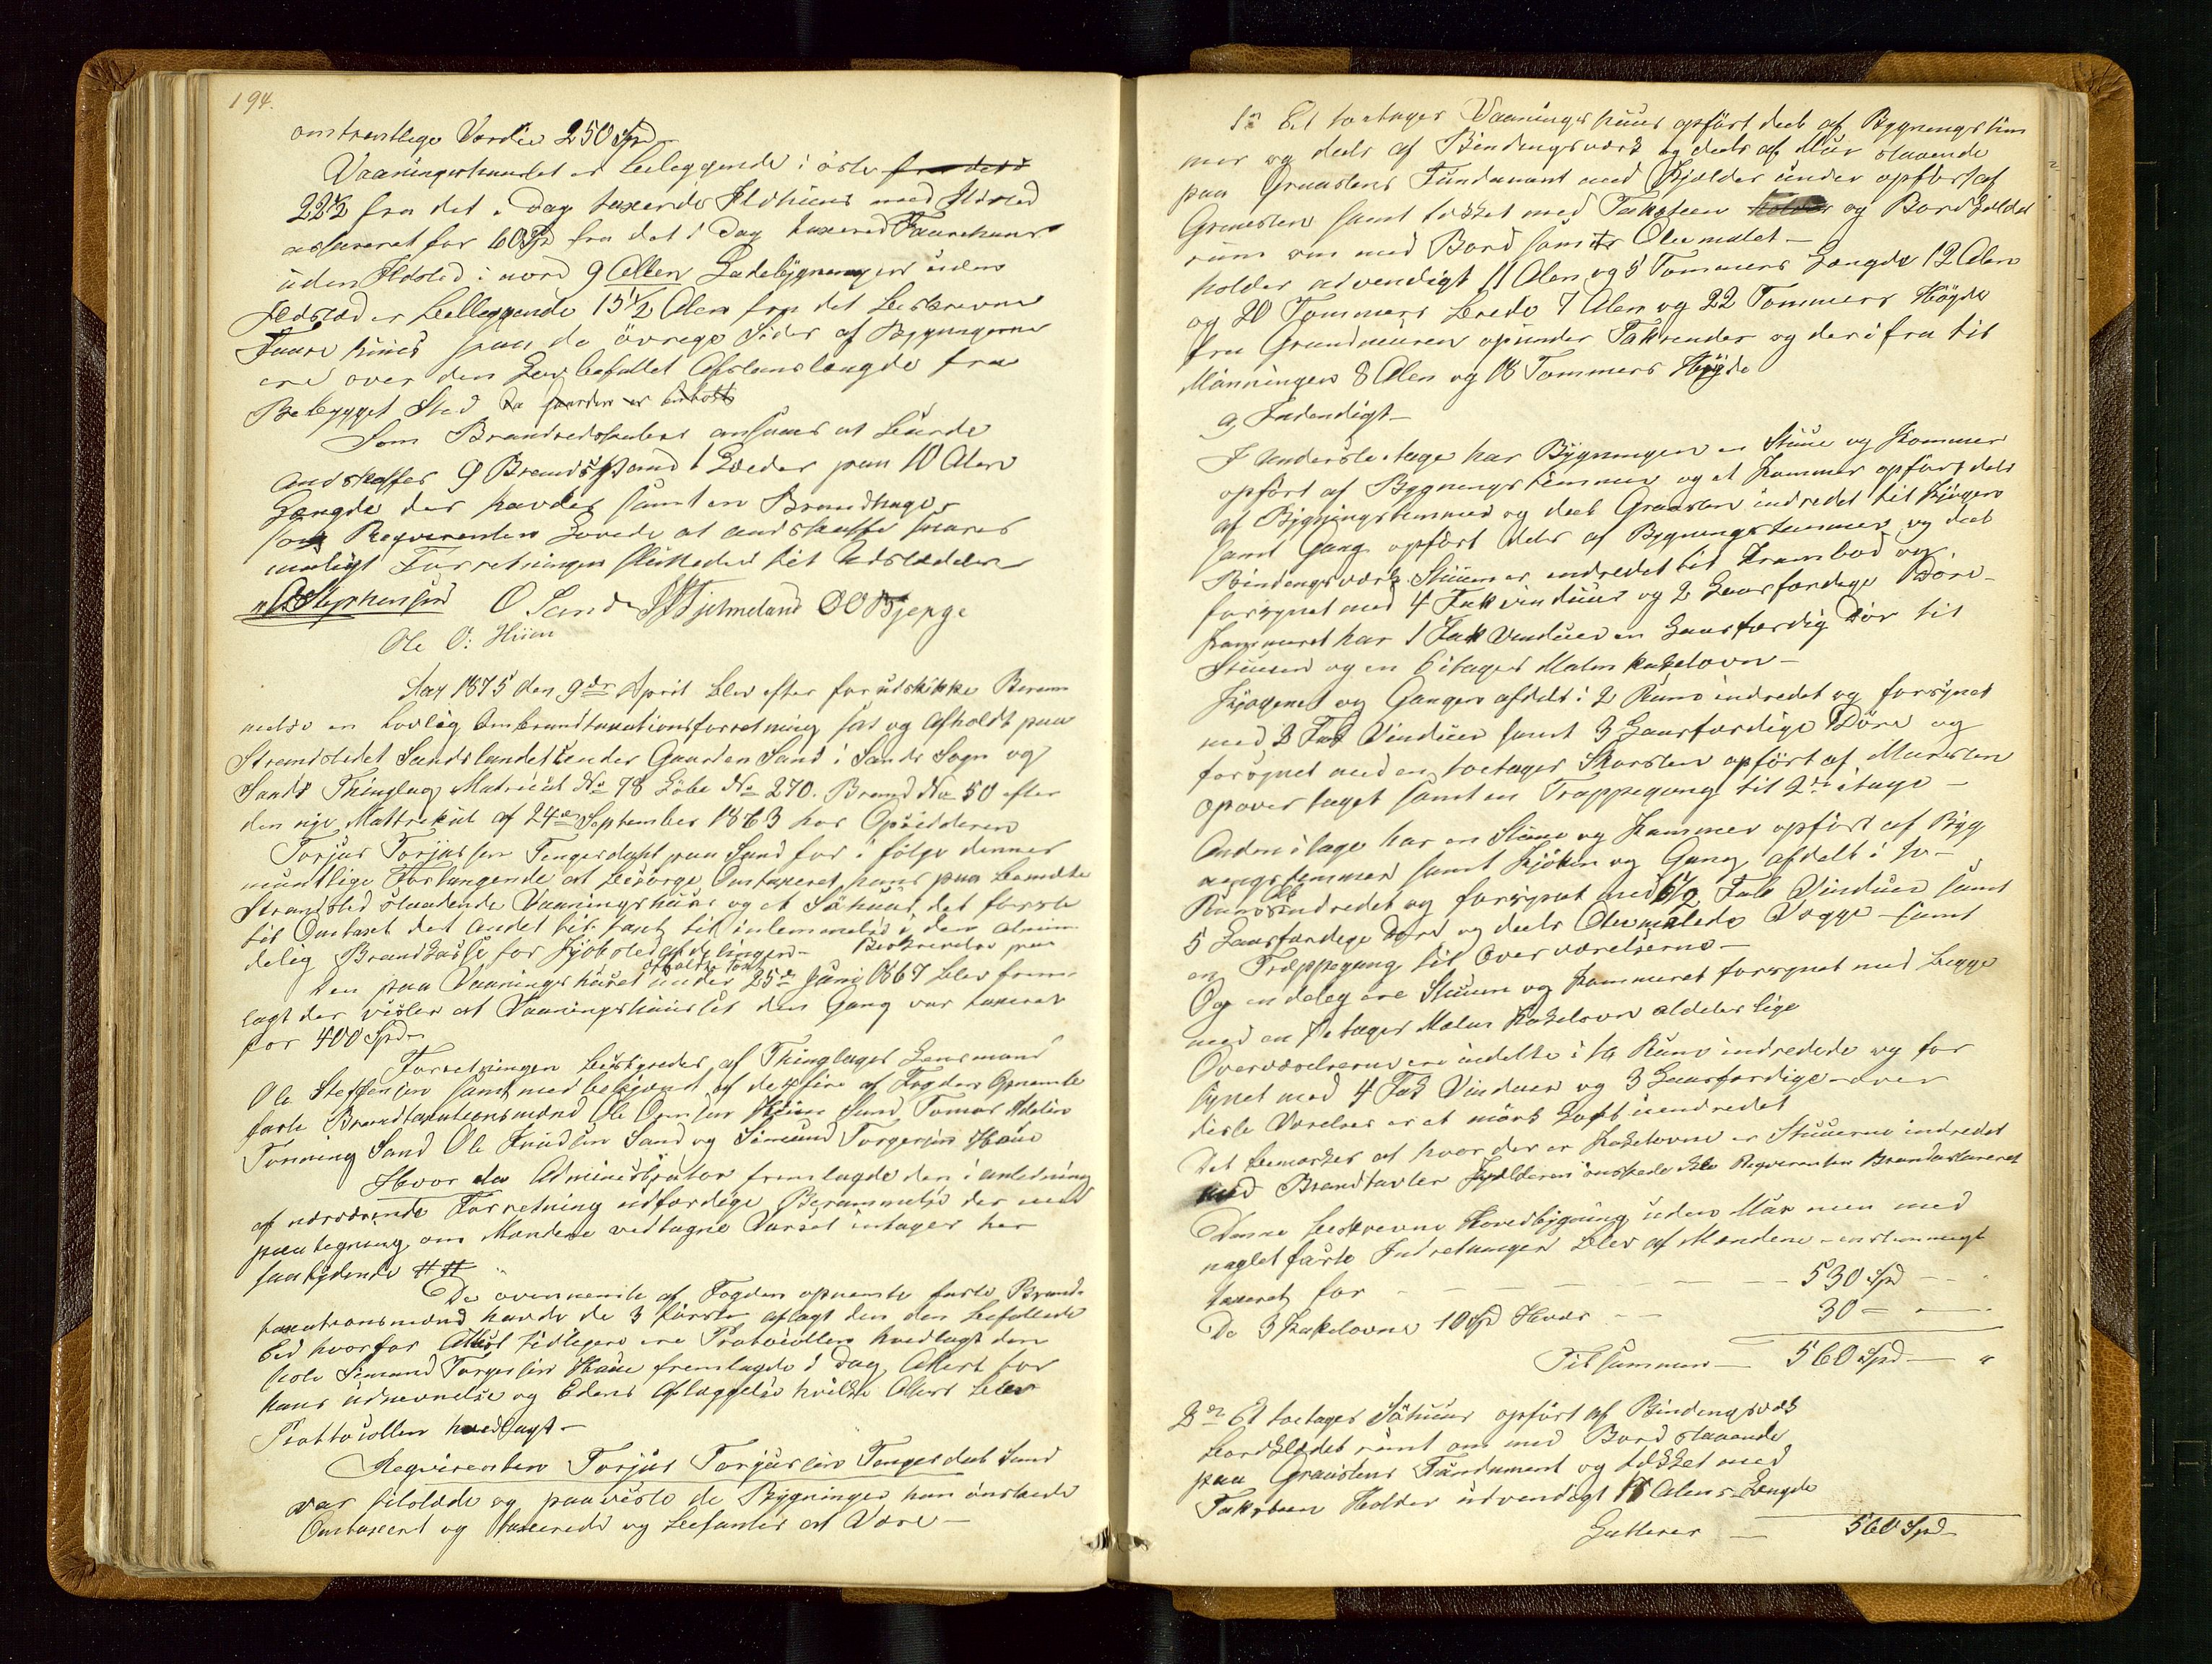 194.
omtrentlige Værdie 250 Spd
Vaaningshuuset er beleggende i öster fra det i
22½ fra det i Dag taxerede Ildhuus med Ildsted
assureret for 60 Spd fra det i Dag taxered Faarehuus
uden Ildsted i nord 9 Allen Ladebygningen uden
Ildsted er beleggende 15½ Alen fra det beskrevne
Faare huus paa de övrige Sider af Bygningerne
ere over den Lovbefallet Afstanslængde fra
Bebygget Sted
Som Brandredskaber ansaaes at burde
andskaffes 9 Brandspand 1 Leeder paa 10 Alen
Længde der havdes samt en Brandhage
som Reqverenten Lovede at andskaffe snares
muligt Forretningen sluttedes tit Udstedelse
O Stephensen O Sand Hjelmeland O O Bjerge
Ole O: Hiim
Aar 1875 den 9de April blev efter forudskikke Beram
melse en Lovlig Ombrandtaxationsforretning sat og Afholdt paa
Strandstedet Sandslandet under Gaarden Sand i Sands Sogn og
Sands Thinglag Matricul No 78 Löbe No 270. Brand No 50 efter
den nye Mattrikul af 24de September 1863 hos Opsidderen
Torjus Torjussen Tengesdahl paa Sand for i fölge dennes
mundtlige Forlangende at besörge Omtaxeret hans paa bemeldte
Strandsted staaende Vaaningshuus og et Söhuus det forste
til Omtaxt det andet til taxt til inlemmelse i den almin
delig Brandkasse for Kjöbstedafdelingen - Beskrivelse paa
Den paa Vaaningshuset under 25de Juni 1867 blev frem-
afholdte Taxt
lagt der viser at Vaaningshuuset den Gang var taxeret
for 400 Spd
Forretningen bestyredes af Thinglagets Lensmand
Ole Steffensen samt med betjent af de fire af Fogden Opnemte
faste Brandtaxationsmænd Ole Omsen Hiim Sand Tomas
Tonning Sand Ole Knudsen Sand og Simund Torgersen Haae
Hvor da Administrator fremlagde den i anledning
af nærværende Forretning udfærdige Berammelse der med
paategning om Mændene vedtagne Varsel intages her
saa lydende ## "
De ovennemte af Fogden opnemte faste Brand-
taxationsmænd havde de 3 förste aflagt den den befallede
Eed hvorfor Attest tidligere ere Protocollen hvedlagt den
hole Simund Torgersen Haae fremlagde i Dag Attest for
hans udnevnelse og Edens Aflæggelse hvilke Attest blev
Prottocollen hvedlagt -
Reqvirenten Torjus Torjussen Tengesdal Sand
var tilstæde og paaviste de Bygninger han önskede
Omtaxert og taxerede og befantes at Være -
1o Et toetages Vaaningshuus opfört deels af Bygningstöm
mer og deels af Bindingsværk og deels af Mur staaende
paa Graastens Fundament med Kjelder under opfört af
Graasten samt tekket med Taksteen og Bordkleldet
runt om med Bord samt Oliemalet -
holder udvendigt 11 Alen og 5 Tommers Længde 12 Alen
og 20 Tommers brede 7 Alen og 22 Tommers Höyde
fra Grundmuren opunder Takrender og derifra til
Mönningen 8 Alen og 18 Tommers Höyde
a) Indendigt -
I Understetage har Bygningen en Stuue og Kammer
opfört af Bygningstömmer og et Kammer opfört dels
af Bygningstömmer og deels Graasten indredet til Kjögen
samt Gang opfört dels af Bygningstömmer og deels
Bindingsværk Stuen er indredet til Krambod og
forsynet med 4 Fak vinduer og 2 Laasfærdige Döre -
Kammeret har 1 Fak Vinduer en Laasfærdig Dör til
Stuuen og en 6 etages Malm kakelovn -
Kjögenet og Gangen afdelt i 2 Rum indredet og forsynet
med 3 Fak Vinduer samt 3 Laasfærdige Döre og
forsynet med en toetages Skorsten opfört af Mursten
opover taget samt en Trappegang til 2den etage -
Anden etage har en Stuue og Kammer opfört af Byg
ningstömmer samt Kjöken og Gang afdelt i to
Rum indredet og forsynet med 6½ Fak Vinduer samt
5 Laasfærdige Döre og deels Oliemalede Vægge - samt
en Trappegang til Overværelserne -
Og endelig ere Stuuen og Kammeret forsynet med begge
med en etages Malm Kakelovn aldeles lige
Overværelserne ere indelte i to Rum indredede og for
synet med 4 Fak Vinduer og 3 Laasfærdige - over
disse Værelser er et mörk Loft uendredet
Det bemærkes at hvor der er Kakelovne er Stuuerne indredet
med Brandtavler Kjelderen önskede ikke Reqverenten Brandassureret
Denne beskrevne Hovedbygning uden Mur men med
naglefaste Indretninger blev af Mændene enstemmigt
taxeret for - - - - - - 530 Spd - -
De 3 Kakelovne 10 Spd Hver - - 30 = -
Tilsammen - 560 Spd - "
2o Et toetages Söhuus opfört af Bindingsværk
bordklædet runt om med Bord staaende
paa Graastens Fundament og tekket med
Taksteen Holder udvendigt Alens Længde
Latterer - 560 Spd -